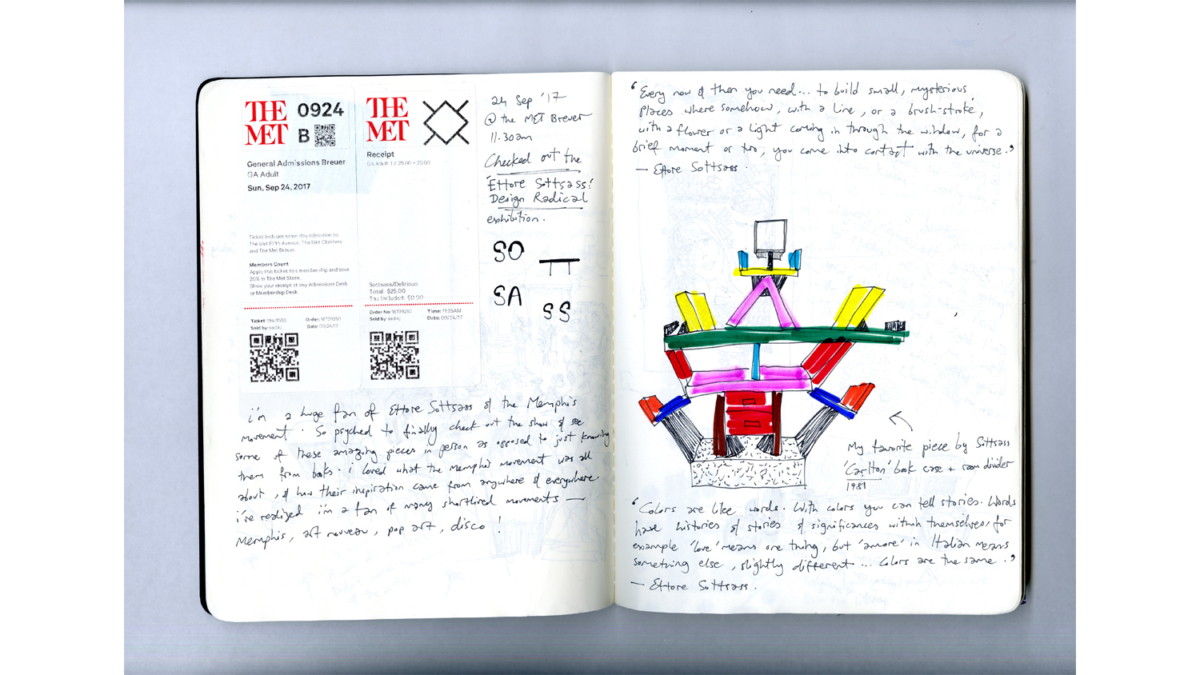 THE MET
0924
B
General Admissions Breuer
GA Adult
Sun, Sep 24, 2017
Members Count
THE MET
Receipt
Total: $25.00
24 Sep '17
@ the MET Breuer
11:30am
Checked out the
'Ettore Sottsass:
Design Radical
exhibition.
SO
TT
SA
SS
i'm a huge fan of Ettore Sottsass & the Memphis
movement. So psyched to finally check out the show & see
some of these amazing pieces in person as opposed to just knowing
them from books. i loved what the memphis movement was all
about, & how their inspiration came from anywhere & everywhere
i've realized i'm a fan of many shortlived movements —
Memphis, art nouveau, pop art, disco!
'Every now & then you need... to build small, mysterious
places where somehow, with a line, or a brush-stroke,
with a flower or a light coming in through the window, for a
brief moment or two, you come into contact with the universe.'
— Ettore Sottsass.
My favorite piece by Sottsass
'Carlton' book case + room divider
1981
'Colors are like words. With colors you can tell stories. Words
have histories & stories & significances within themselves, for
example 'love' means one thing, but 'amore' in Italian means
something else, slightly different... Colors are the same.'
— Ettore Sottsass.